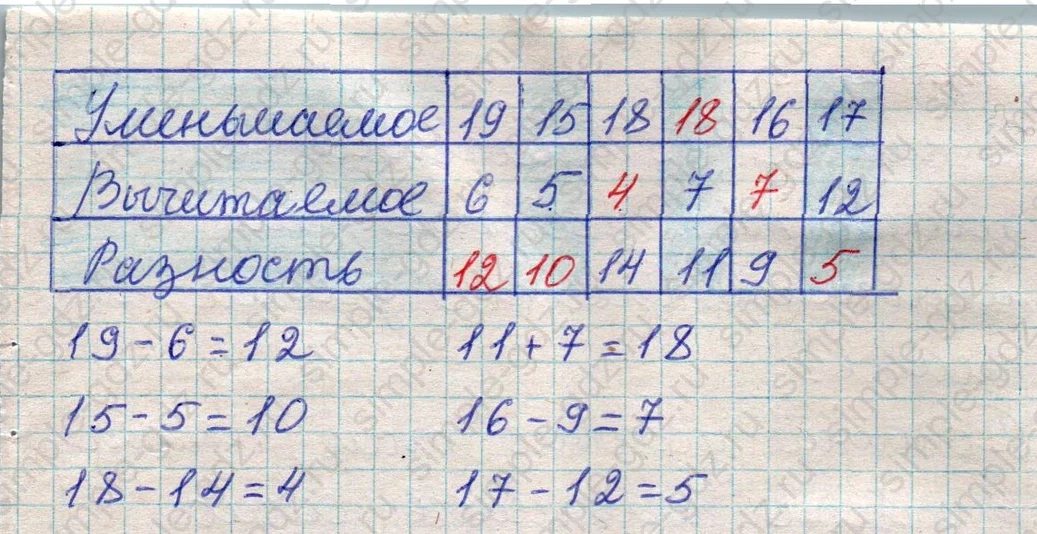 Уменьшаемое 19 15 18 18 16 17
Вычитаемое 6 5 4 7 7 12
Разность 12 10 14 11 9 5
19 - 6 = 12 11 + 7 = 18
15 - 5 = 10 16 - 9 = 7
18 - 14 = 4 17 - 12 = 5
simple-gdz.ru